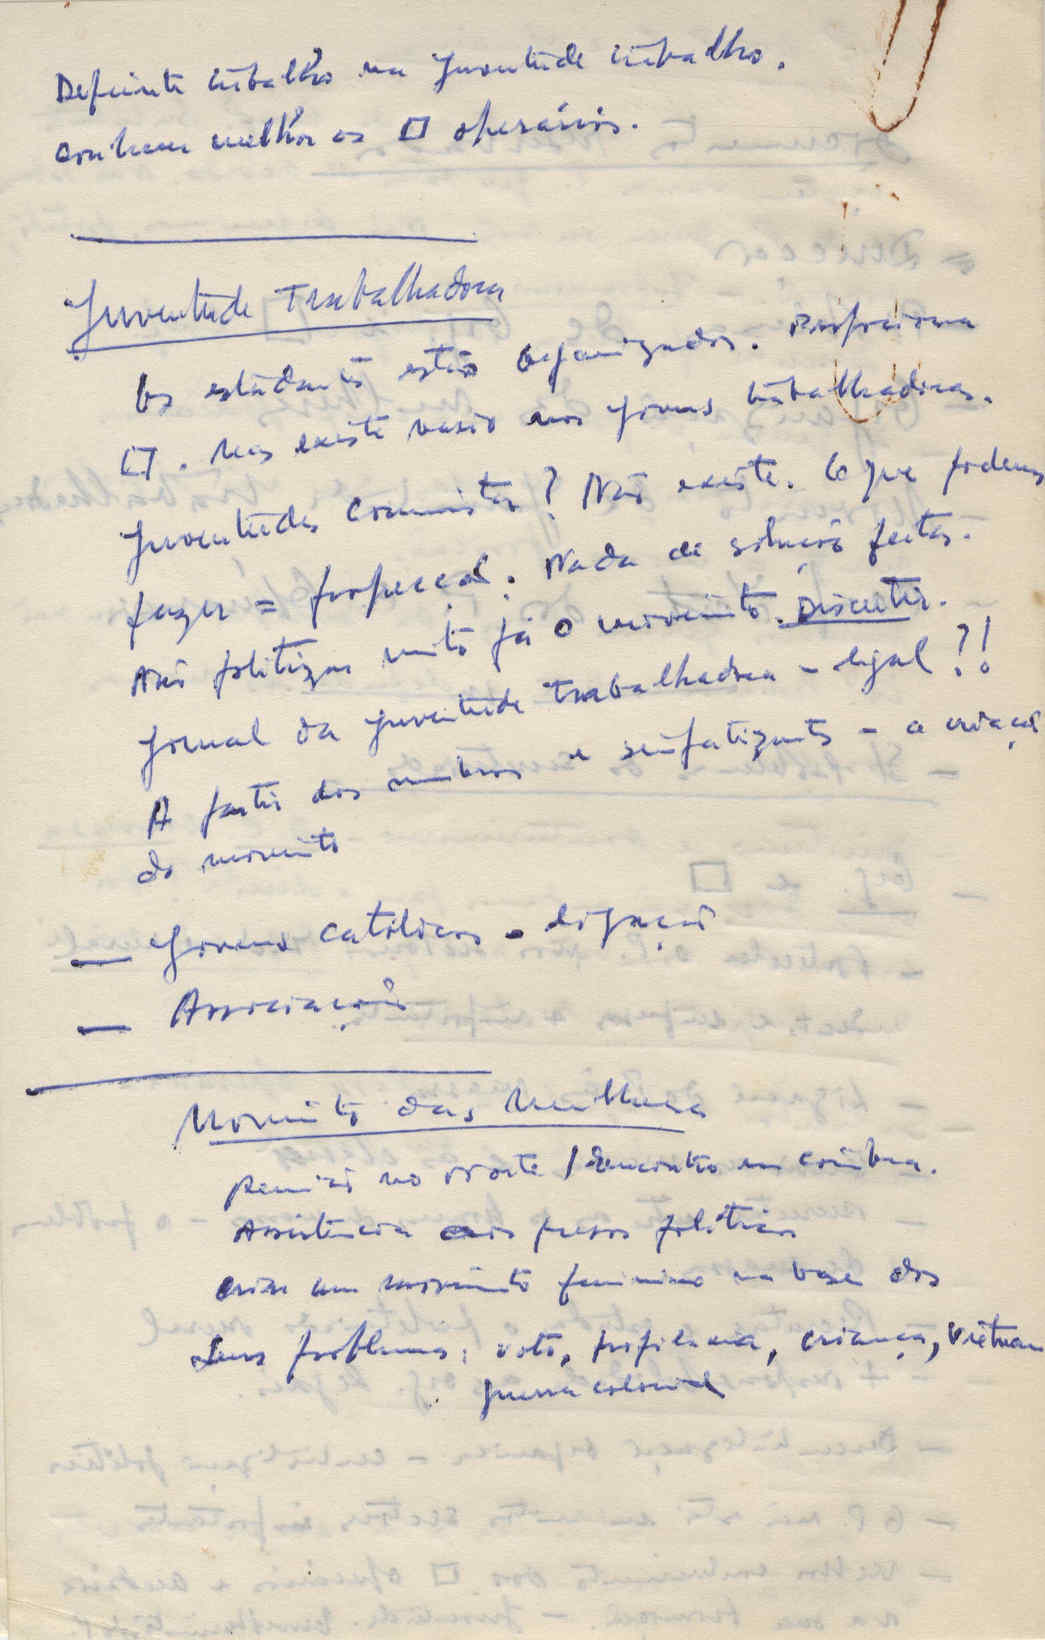 Deficiente trabalho na juventude trabalho.
conhecer melhor os □ operários.
Juventude Trabalhadora
Os estudantes estão organizados.
□. Mas existe vazio nos jovens trabalhadores.
Juventudes comunistas? Não existe. O que podemos
fazer = propecção. Nada de soluções feitas.
Não politizar muito já o movimento. Discutir.
Jornal da juventude trabalhadora - legal?!
A partir dos membros e simpatizantes - a criação
do movimento
— Jovens católicos - ligação
— Associações
Movimento das Mulheres
Reunião no Norte / Encontro em Coimbra.
Assistência aos presos políticos
criar um movimento feminino na base dos
seus problemas: voto, , criança, Vietnam
guerra colonial